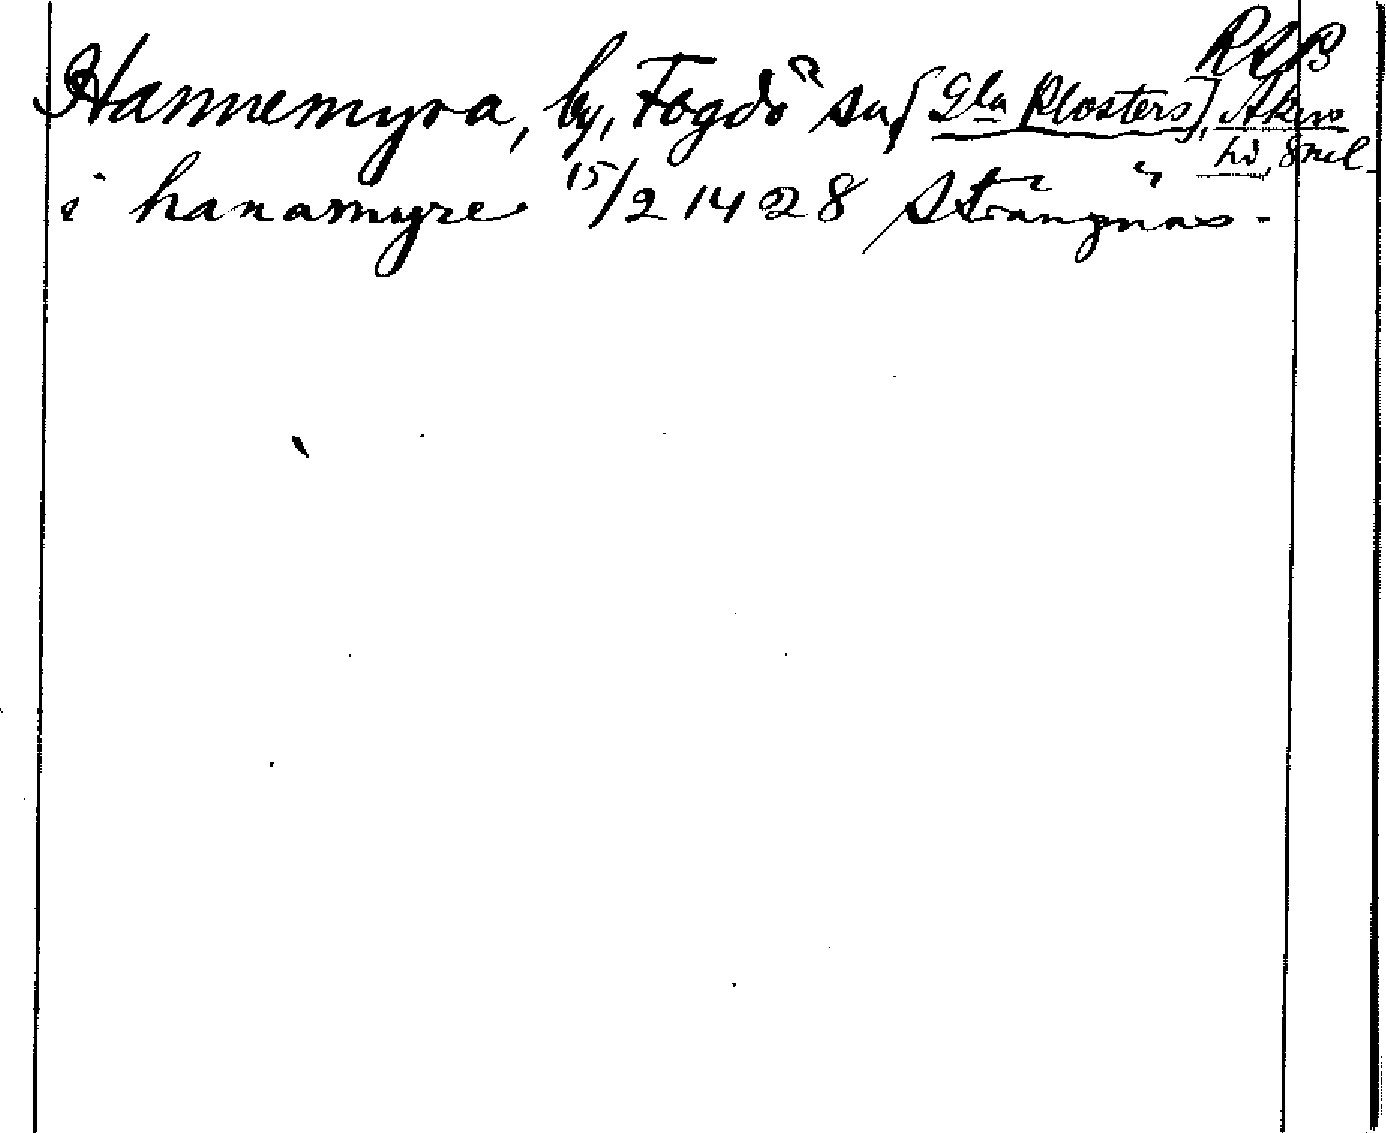 RAP
Hannemyra, by, Fogdö sn, [Gla Klosters], Åkers
hd, Sml.
i hanamyre 15/2 1428 Strängnäs.